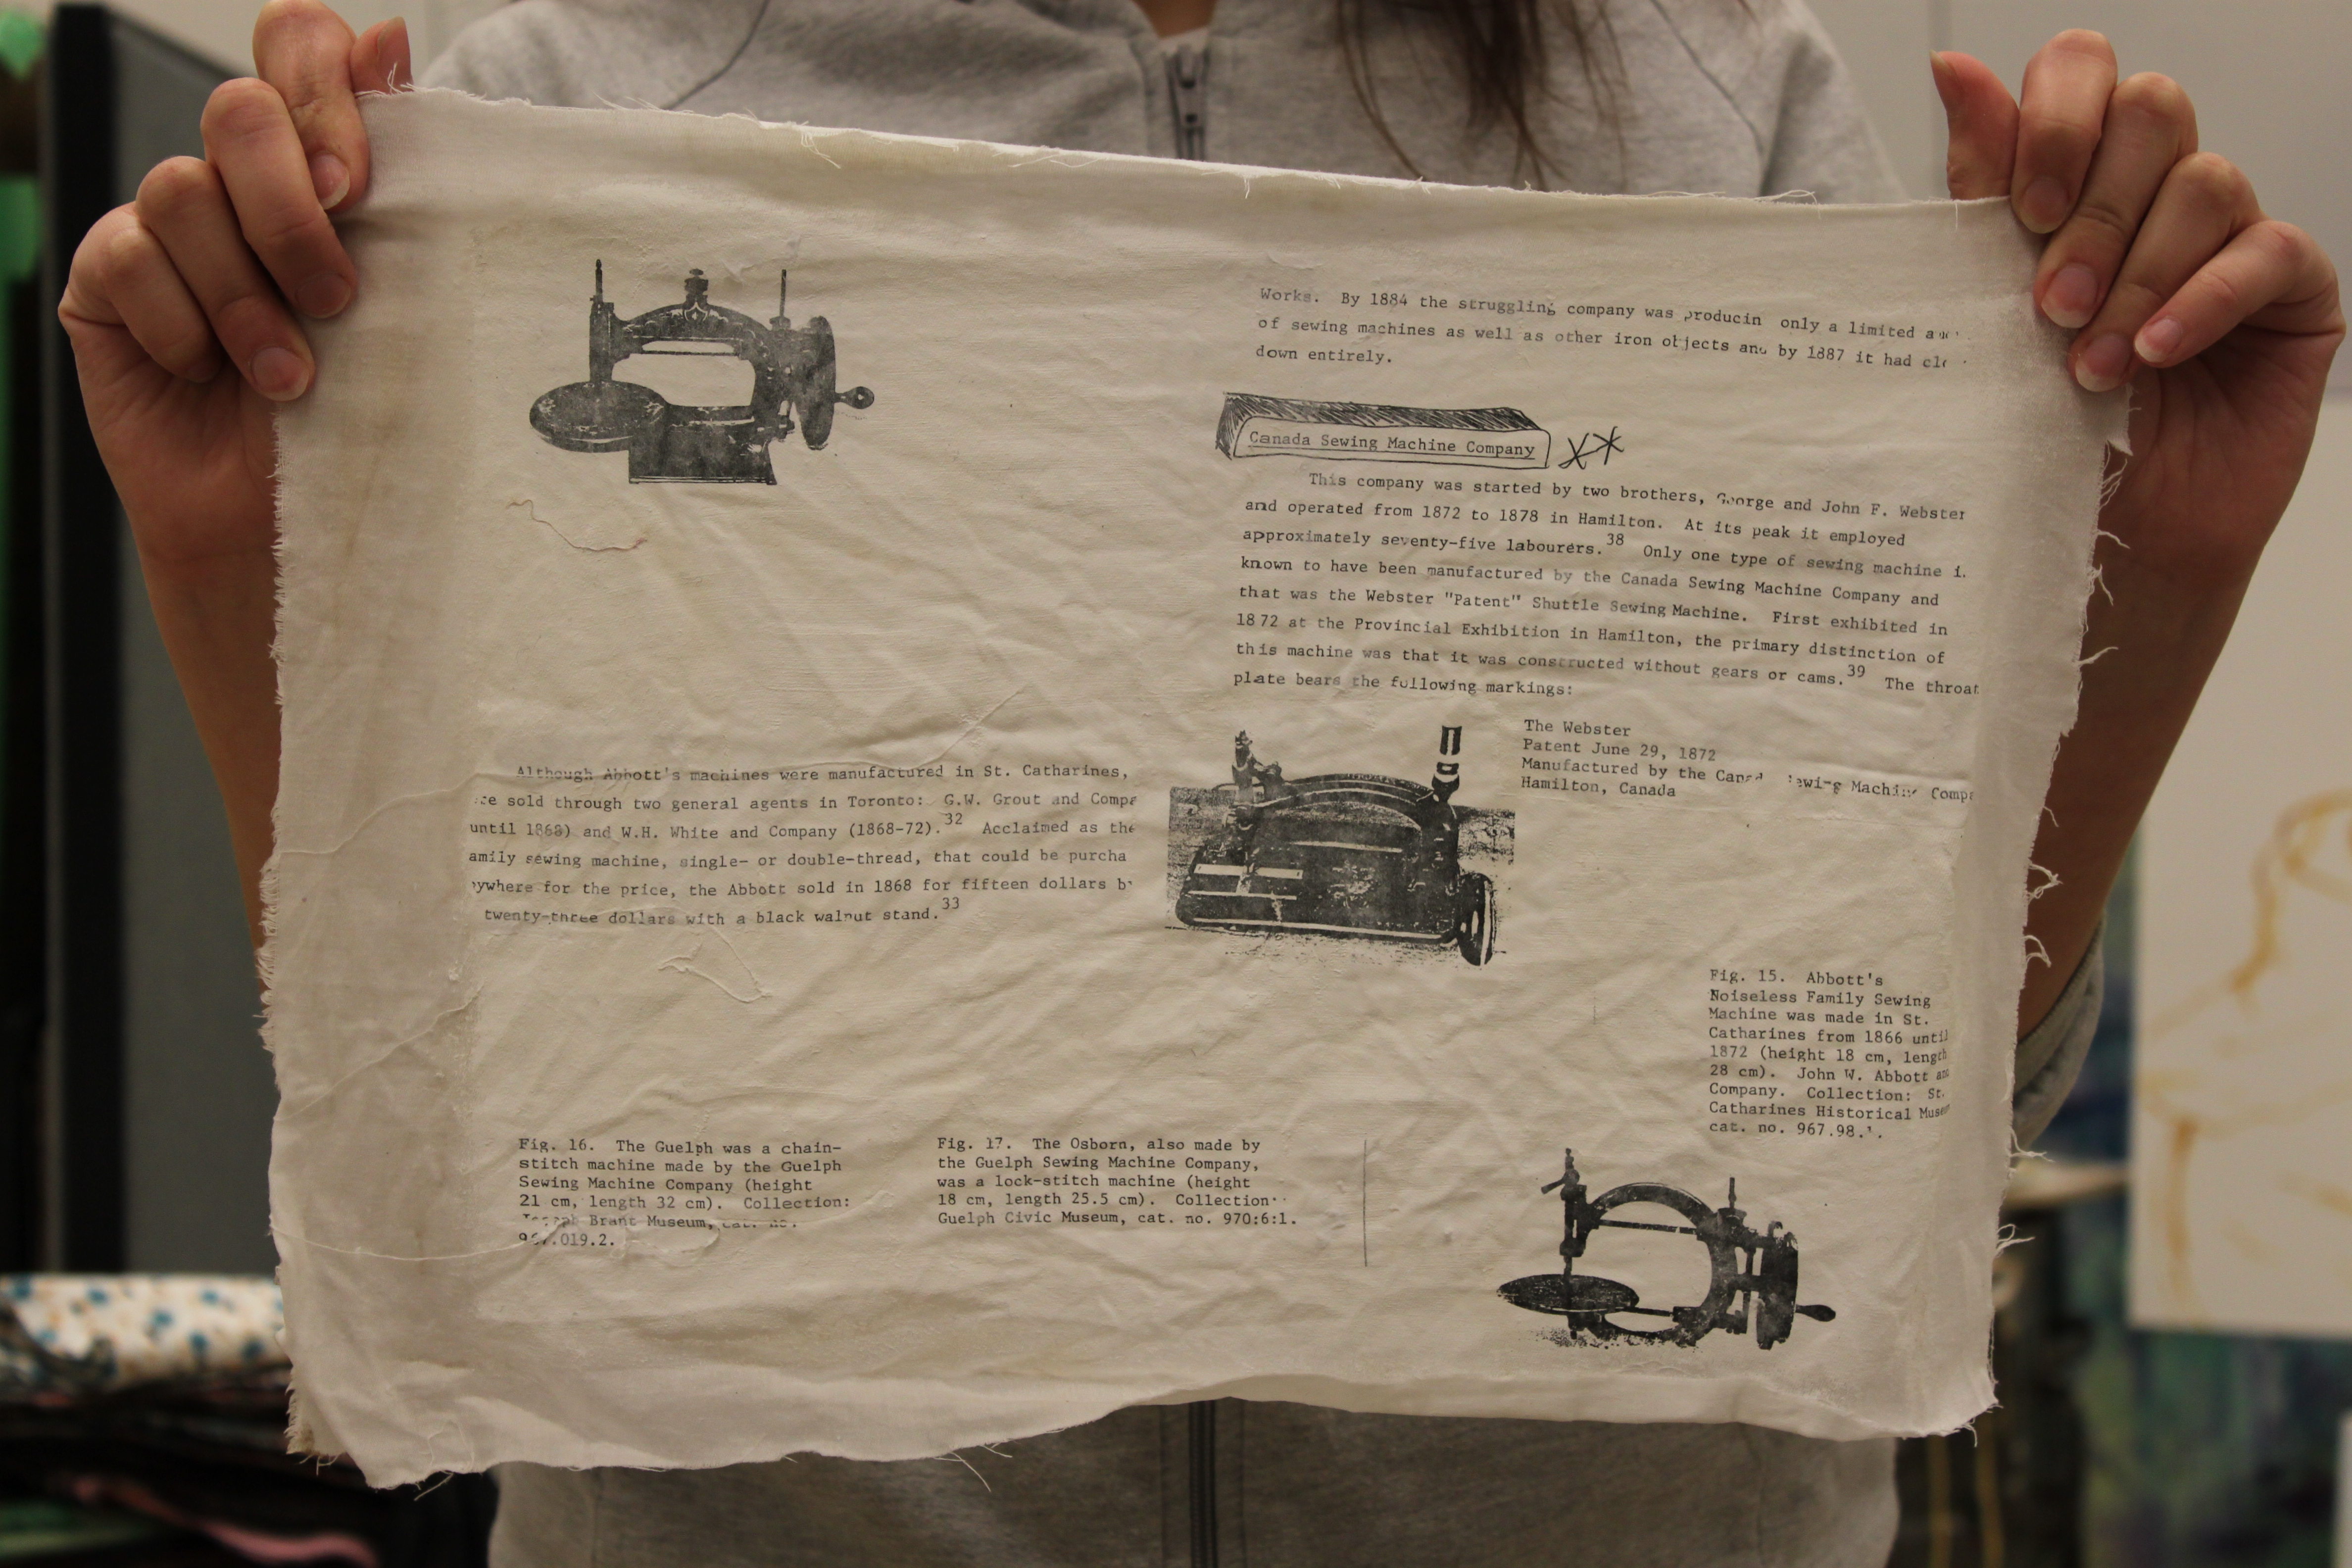 Works. By 1884 the struggling company was producin only a limited
of sewing machines as well as other iron objects and by 1887 it had
down entirely.
Canada Sewing Machine Company
This company was started by two brothers, George and John F. Webster
and operated from 1872 to 1878 in Hamilton. At its peak it employed
approximately seventy-five labourers.38 Only one type of sewing machine
known to have been manufactured by the Canada Sewing Machine Company and
that was the Webster "Patent" Shuttle Sewing Machine. First exhibited in
1872 at the Provincial Exhibition in Hamilton, the primary distinction of
this machine was that it was constructed without gears or cams.39 The throat
plate bears the following markings:
The Webster
Patent June 29, 1872
Manufactured by the Canad Sewing Machin Comp
Hamilton, Canada
Although Abbott's machines were manufactured in St. Catharines,
sold through two general agents in Toronto: G.W. Grout and Compa
until 1868) and W.H. White and Company (1868-72).32 Acclaimed as the
amily sewing machine, single- or double-thread, that could be purcha
ywhere for the price, the Abbott sold in 1868 for fifteen dollars b
twenty-three dollars with a black walnut stand.33
Fig. 15. Abbott's
Noiseless Family Sewing
Machine was made in St.
Catharines from 1866 until
1872 (height 18 cm, length
28 cm). John W. Abbott and
Company. Collection: St.
Catharines Historical Museum
cat. no. 967.98.1.
Fig. 16. The Guelph was a chain-
stitch machine made by the Guelph
Sewing Machine Company (height
21 cm, length 32 cm). Collection:
Joseph Brant Museum, cat. no.
019.2.
Fig. 17. The Osborn, also made by
the Guelph Sewing Machine Company,
was a lock-stitch machine (height
18 cm, length 25.5 cm). Collection:
Guelph Civic Museum, cat. no. 970:6:1.